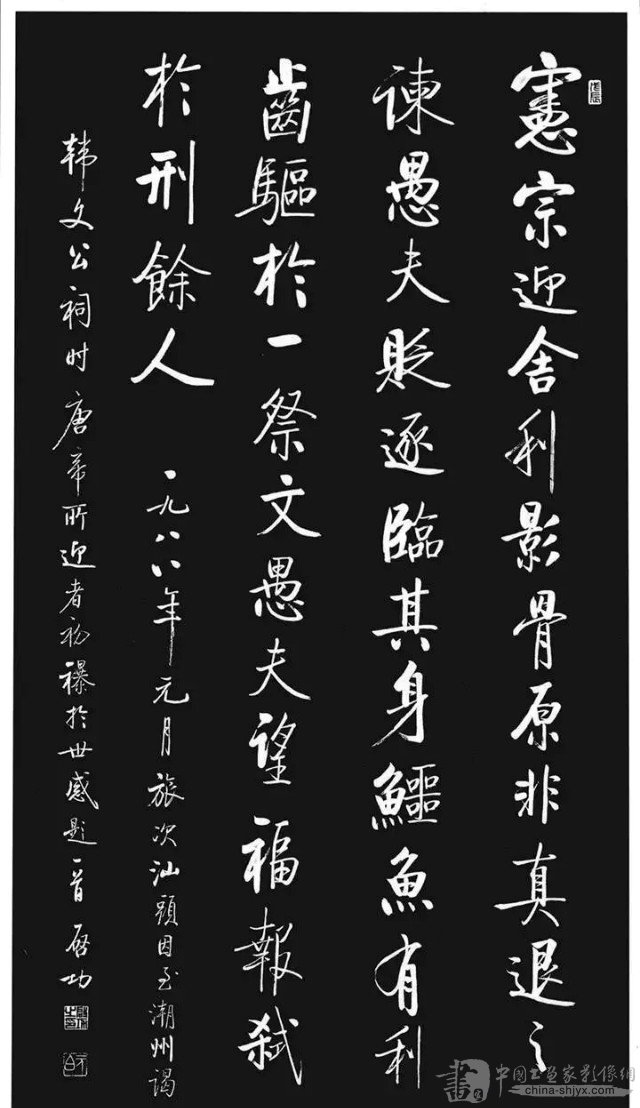 憲宗迎舍利影骨原非真退之
諫愚夫貶逐臨其身鱷魚有利
齒驅於一祭文愚夫望福報弒
於刑餘人
一九八八年元月旅次汕頭因至潮州謁
韩文公祠时唐帝所迎者初曝於世感題一首 启功
戊辰
中国书画家影像網
china-shjyx.com